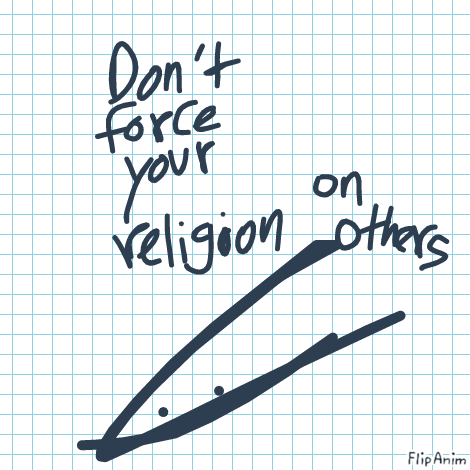 Don't
force
your
religion on
others
FlipAnim